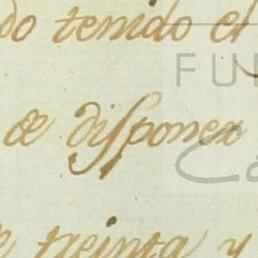 do tenido el
FU
de disponer
Ca
treinta y